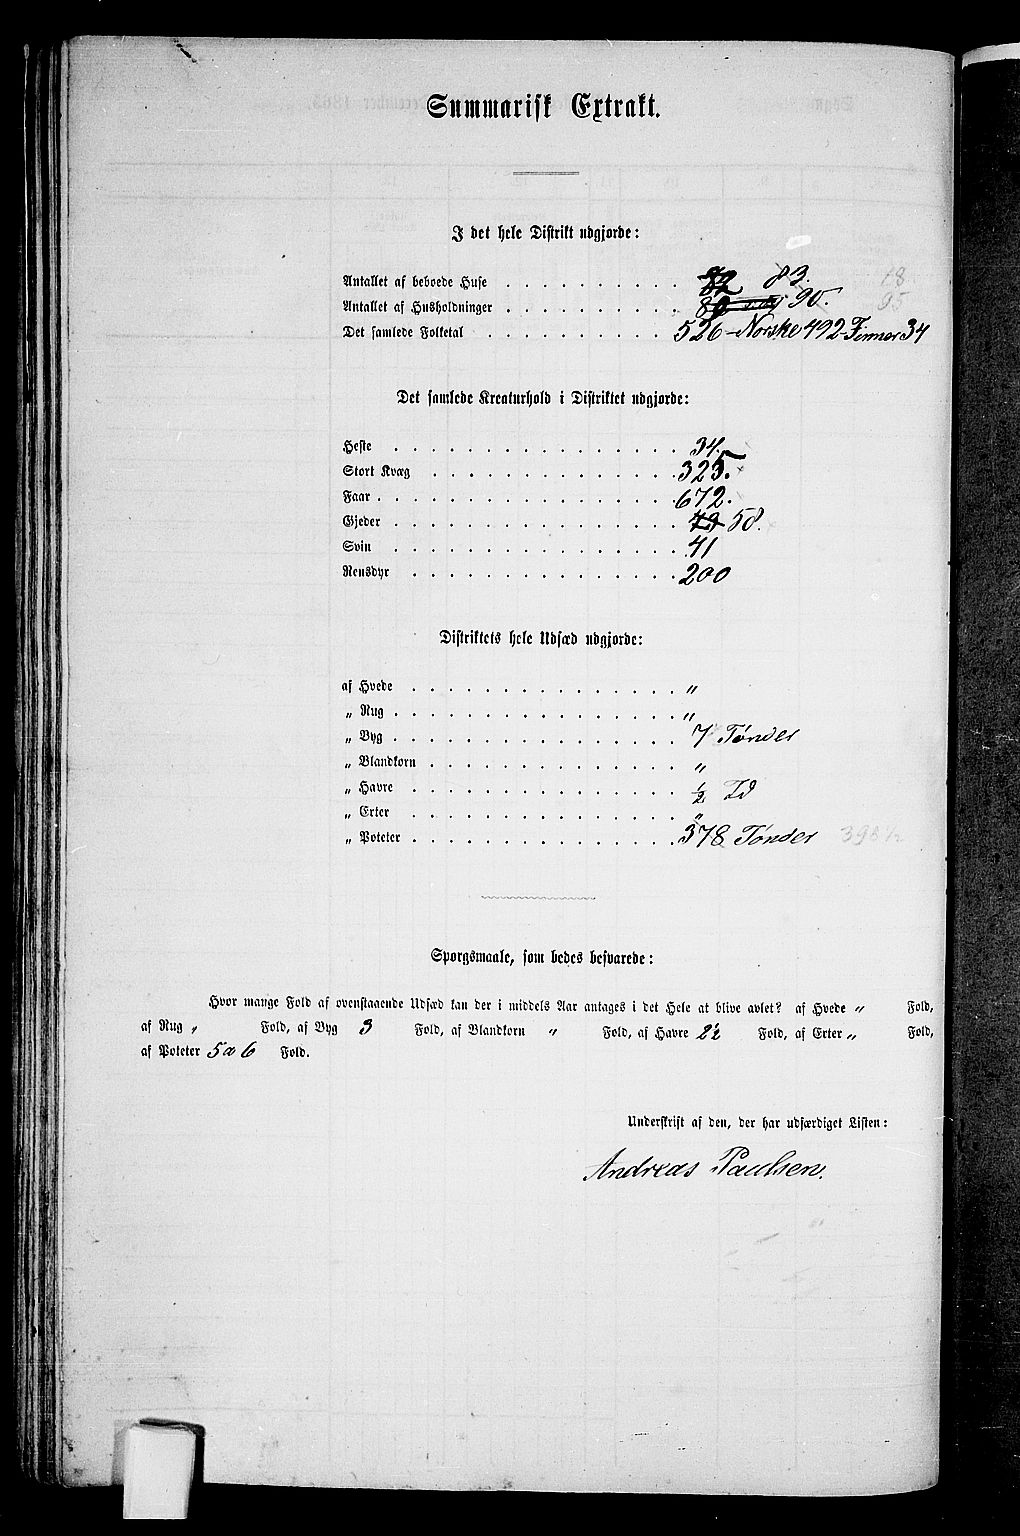 Summarisk Extrakt.
I det hele Distrikt udgjorde:
Antallet af beboede Huse . . . . . . . . 83. 18
Antallet af Husholdninger . . . . . . . . 90. 95
Det samlede Folketal . . . . . . . . 526 - Norske 492 - Finner 34
Det samlede Kreaturhold i Distriktet udgjorde:
Heste . . . . . . . . . . . . 34.
Stort Kvæg . . . . . . . . . . . 325.
Faar . . . . . . . . . . . . . 672.
Gjeder . . . . . . . . . . . . 58.
Svin . . . . . . . . . . . . 41
Rensdyr . . . . . . . . . . . 200
Distriktets hele Udsæd udgjorde:
af Hvede . . . . . . . . . . . "
„ Rug . . . . . . . . . . . . "
„ Byg . . . . . . . . . . . . 7 Tønder
„ Blandkorn . . . . . . . . . . . "
„ Havre . . . . . . . . . . . ½ Td
„ Erter . . . . . . . . . . . "
„ Poteter . . . . . . . . . . . 378 Tønder 398½
Sporgsmaale, som bedes besvarede:
Hvor mange Fold af ovenstaaende Udsæd kan der i middels Aar antages i det Hele at blive avlet? af Hvede " Fold,
af Rug " Fold, af Byg 3 Fold, af Blandkorn " Fold, af Havre 2½ Fold, af Erter " Fold,
af Poteter 5 a 6 Fold.
Underskrift af den, der har udfærdiget Listen:
Andreas Paulsen.